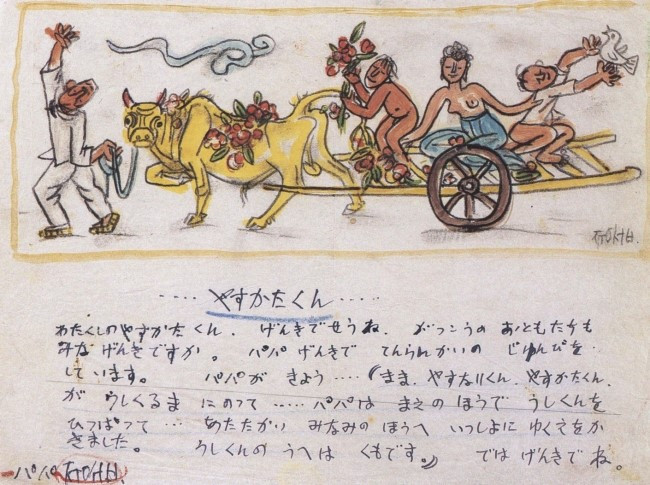 ㅈㅜㅇㅅㅓㅂ.
..... やすかたくん .....
わたくしのやすかたくん. げんきでせうね. がっこうの おともたちも
みなげんきですか. パパ げんきで てんらんかいの じゅんびを
しています。 パパが きょう .... (まま. やすなりくん. やすかたくん.
が うしくるま にのって ...... パパは まえのほうで うしくんを
ひっぱって ... あたたかい みなみのほうへ いっしょに ゆくえをか
きました。 うしくんの うへは くもです。) では げんきで ね。
パパ ㅈㅜㅇㅅㅓㅂ.